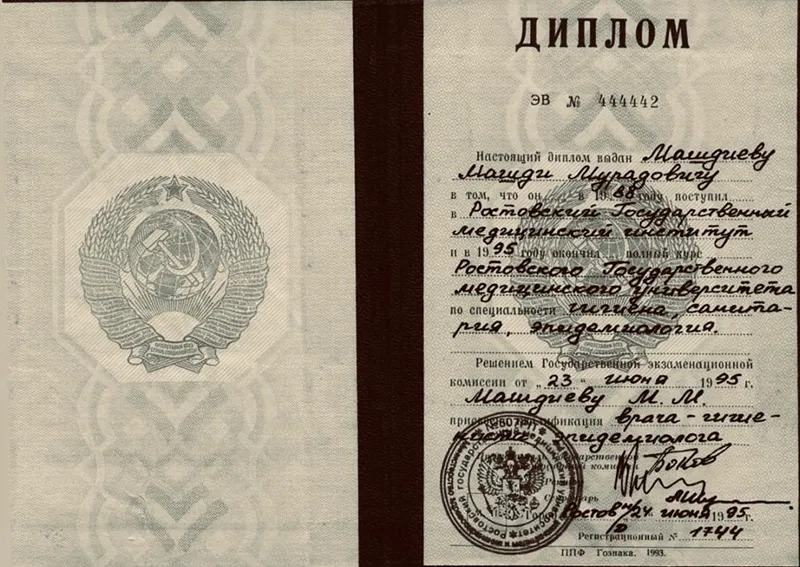 ДИПЛОМ
ЭВ № 444442
Настоящий диплом выдан Машдиеву
Магиди Мурадовичу
в том, что он в 1988 году поступил
в Ростовский Государственный
медицинский институт
и в 1995 году окончил полный курс
Ростовского Государственного
медицинского университета
по специальности гигиена, санита-
рия, эпидемиология.
Решением Государственной экзаменационной
комиссии от „23“ июня 1995 г.
Машдиеву М. М.
квалификация врача-гигие-
эпидемиолога
Государственной
комиссии
Ростов н/Д 24 июня 1995 г.
Регистрационный № 1744
ППФ Гознака. 1993.